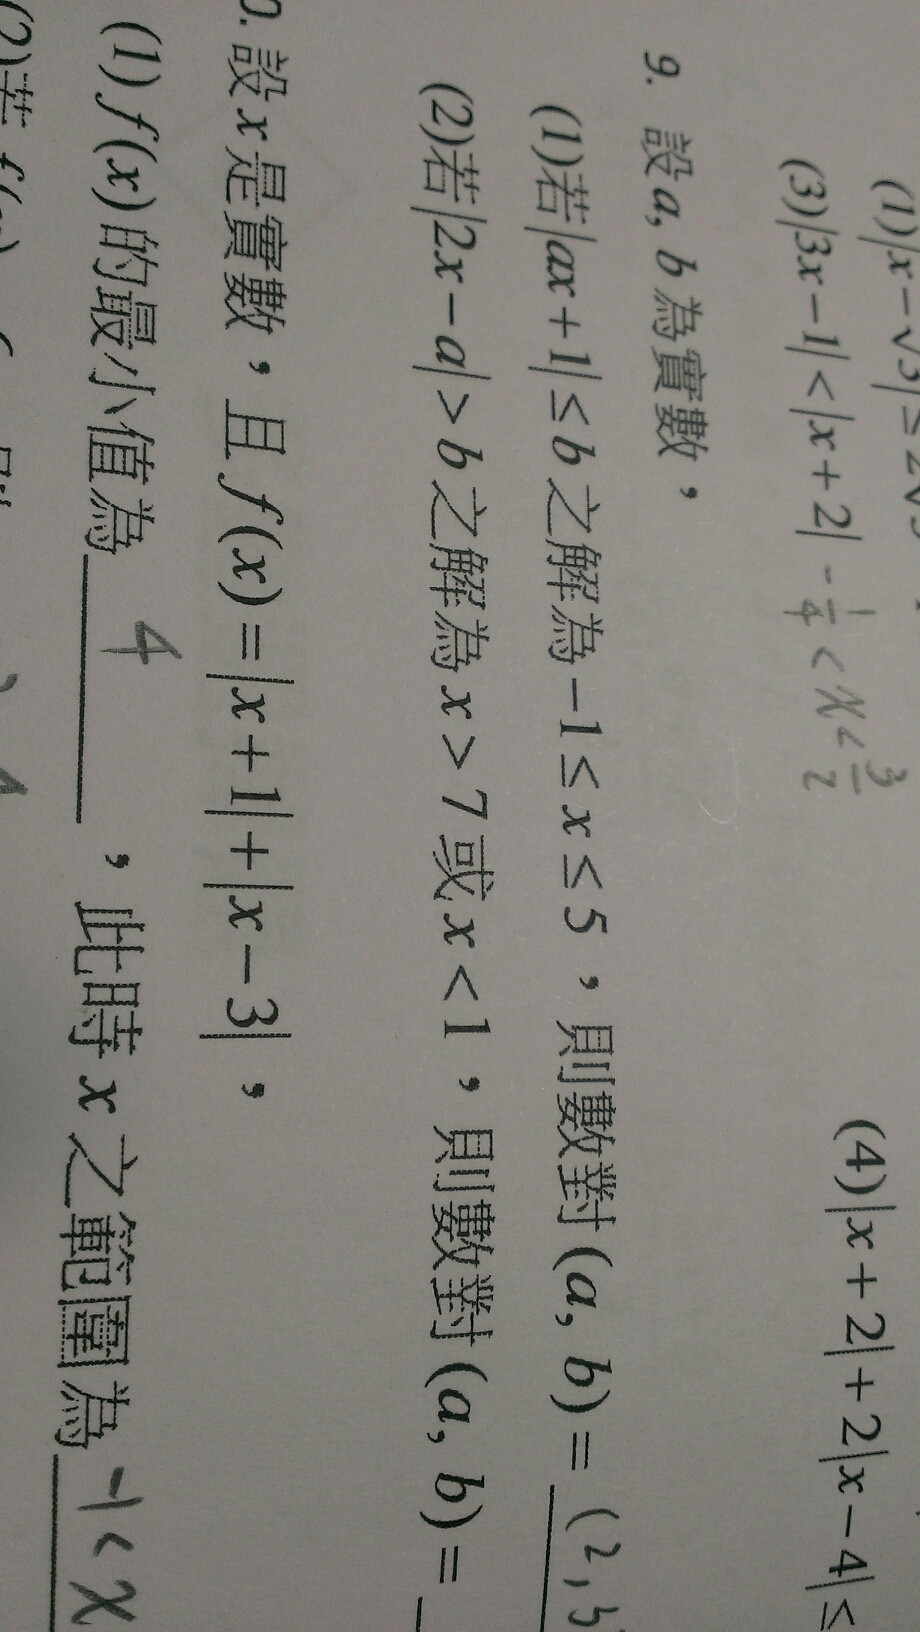 (1)|x-√3|≤2√3
(3)|3x-1|<|x+2| -1/4<x<3/2 (4)|x+2|+2|x-4|≤
9. 設a, b為實數，
(1)若|ax+1|≤b之解為-1≤x≤5，則數對(a, b)=(2,3
(2)若|2x-a|>b之解為x>7或x<1，則數對(a, b)=
0. 設x是實數，且f(x)=|x+1|+|x-3|，
(1)f(x)的最小值為 4 ，此時x之範圍為 -1<x
(2)若